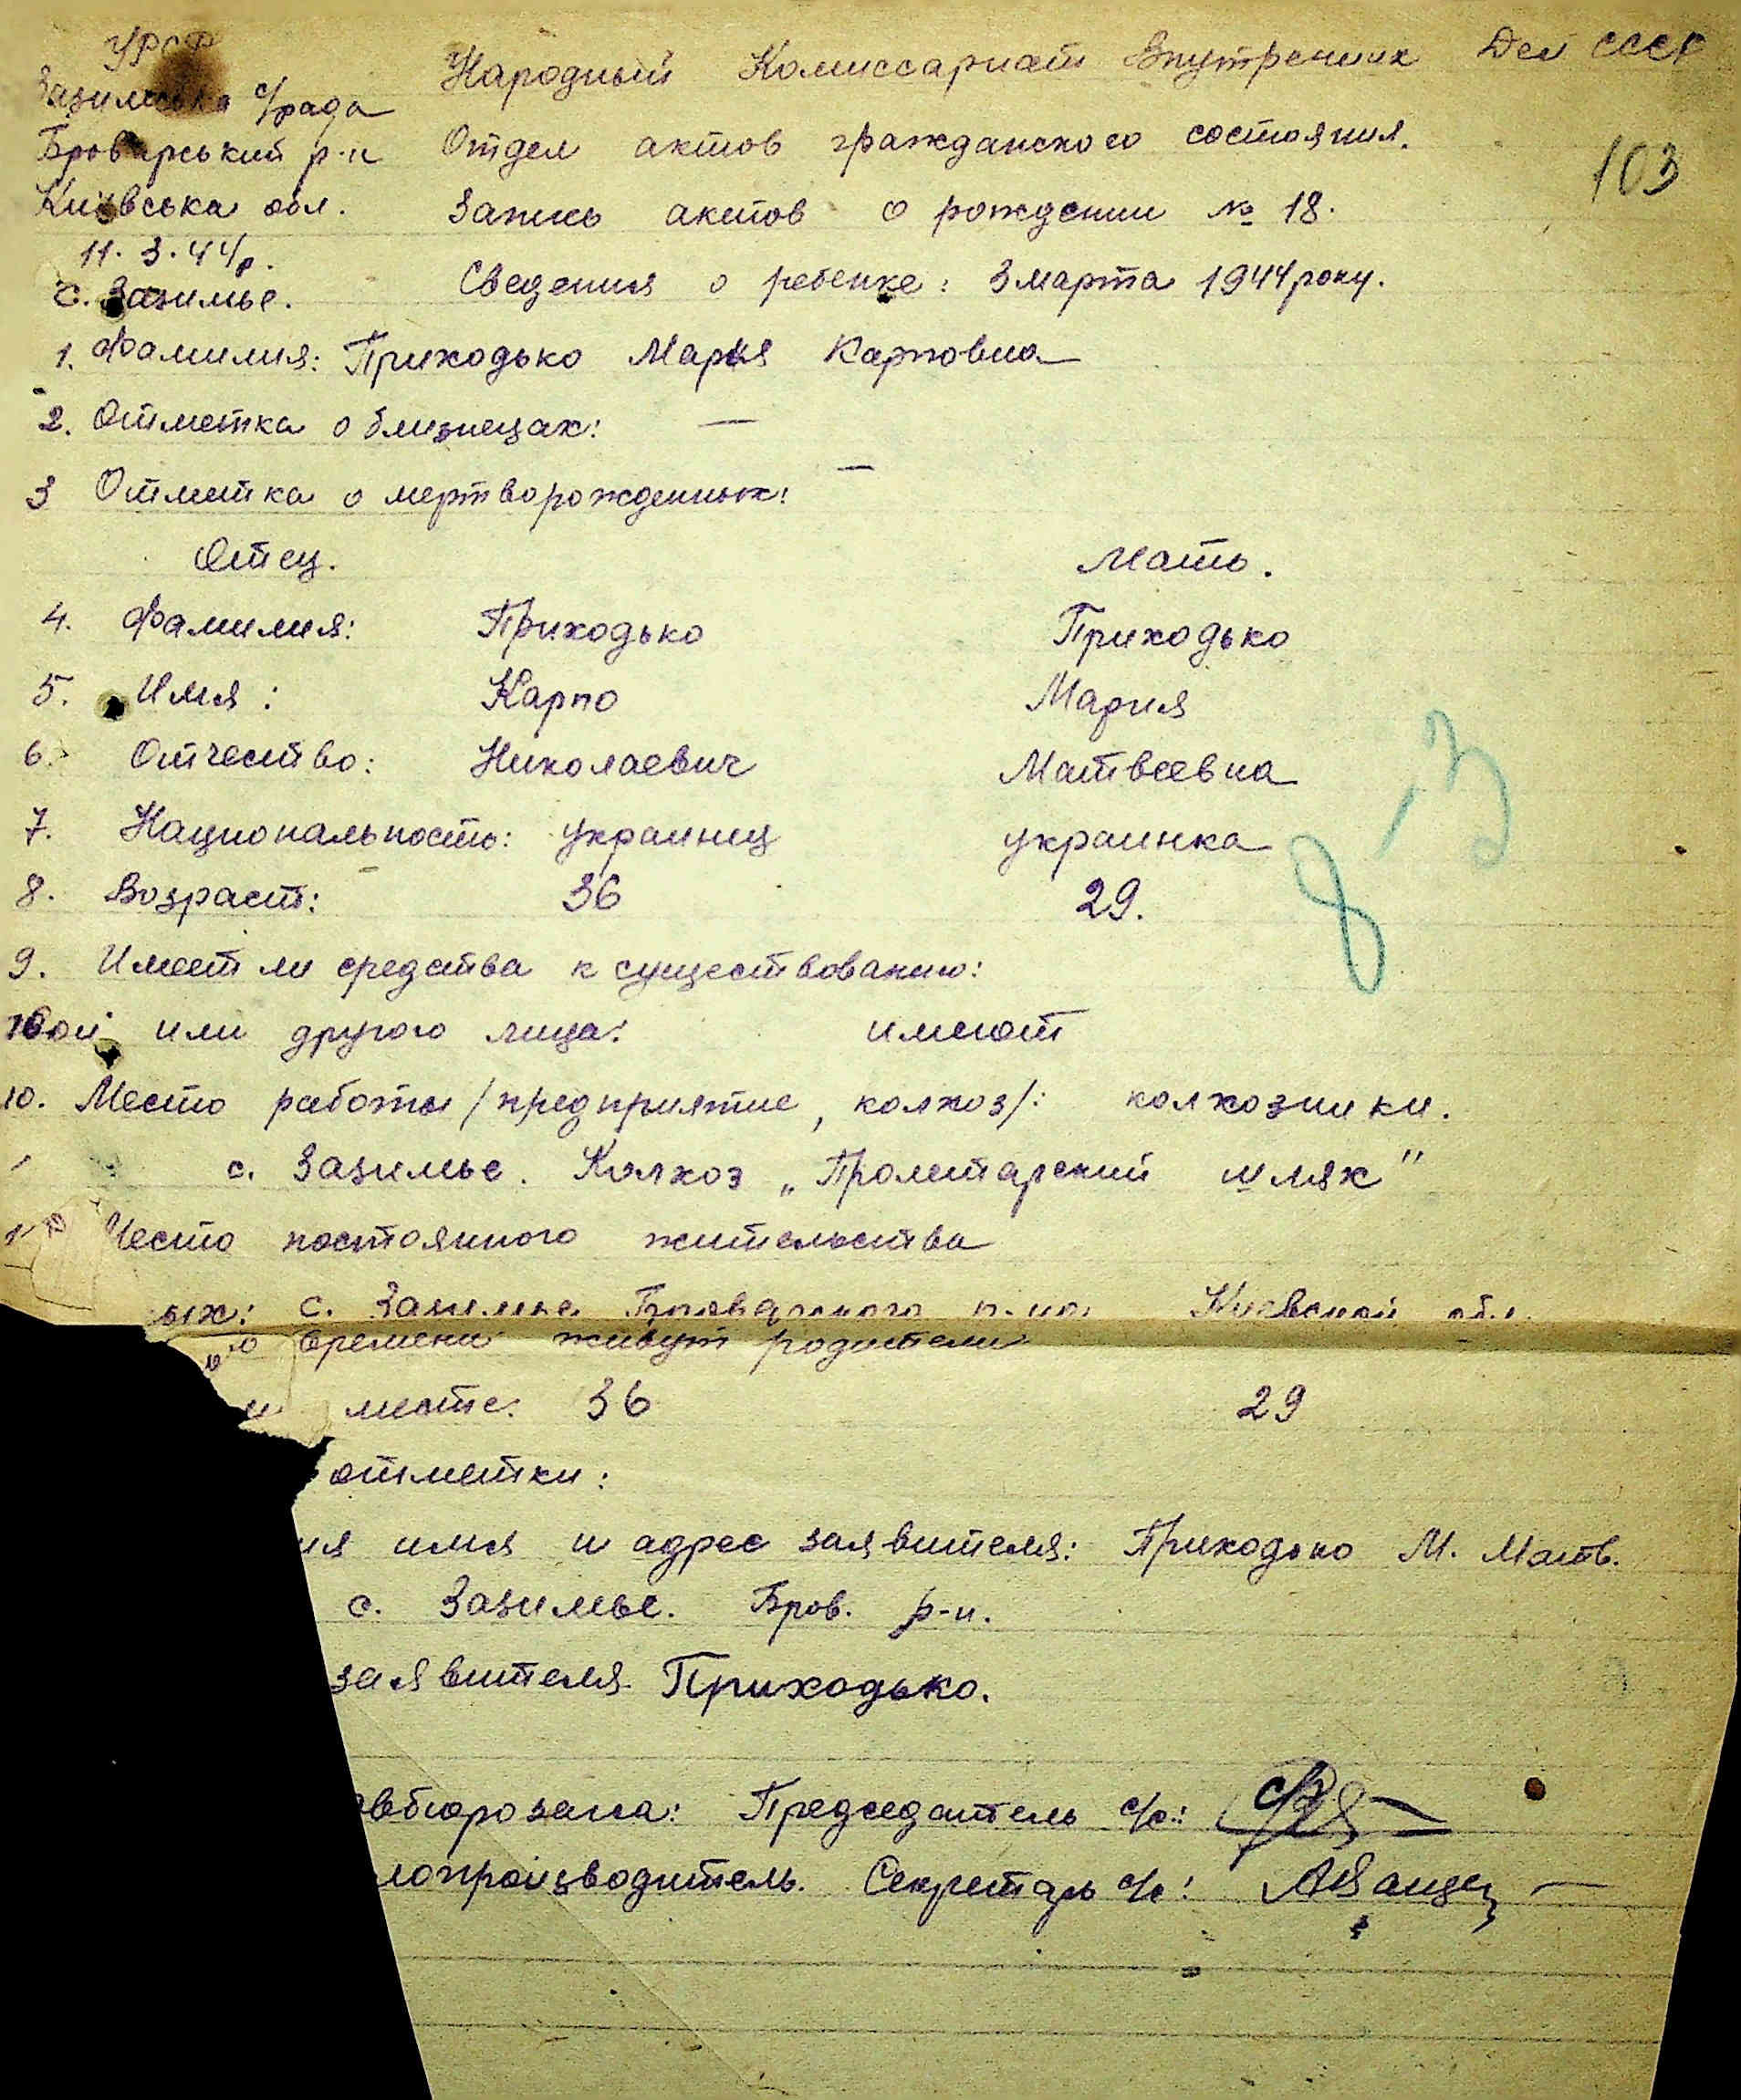 УРСР
Зазимська с/рада
Броварський р-н
Київська обл.
11.3.44р.
с. Зазимье.
Народный Комиссариат Внутрених Дел СССР
Отдел актов гражданского состояния.
103
Запись актов о рождении № 18.
Сведения о ребенке: 3 марта 1944 року.
1. Фамилия: Приходько Мария Карповна
2. Отметка о близнецах: —
3 Отметка о мертворожденных: —
Отец. Мать.
4. Фамилия: Приходько Приходько
5. Имя: Карпо Мария
6. Отчество: Николаевич Матвеевна
7. Национальность: украинец украинка
8. Возраст: 36 29.
8-3
9. Имеет ли средства к существованию:
или другого лица: имеют
10. Место работы /предприятие, колхоз/: колхозники.
с. Зазимье. Колхоз „Пролетарский шлях"
Место постоянного жительства
ых: с. Зазимье Броварского р-на Киевской обл.
времени живут родители
и месте: 36 29
отметки:
ия имя и адрес заявителя: Приходько М. Матв.
с. Зазимье. Бров. р-н.
заявителя Приходько.
авбюрозагса: Председатель с/с:
лопроизводитель. Секретарь с/с: